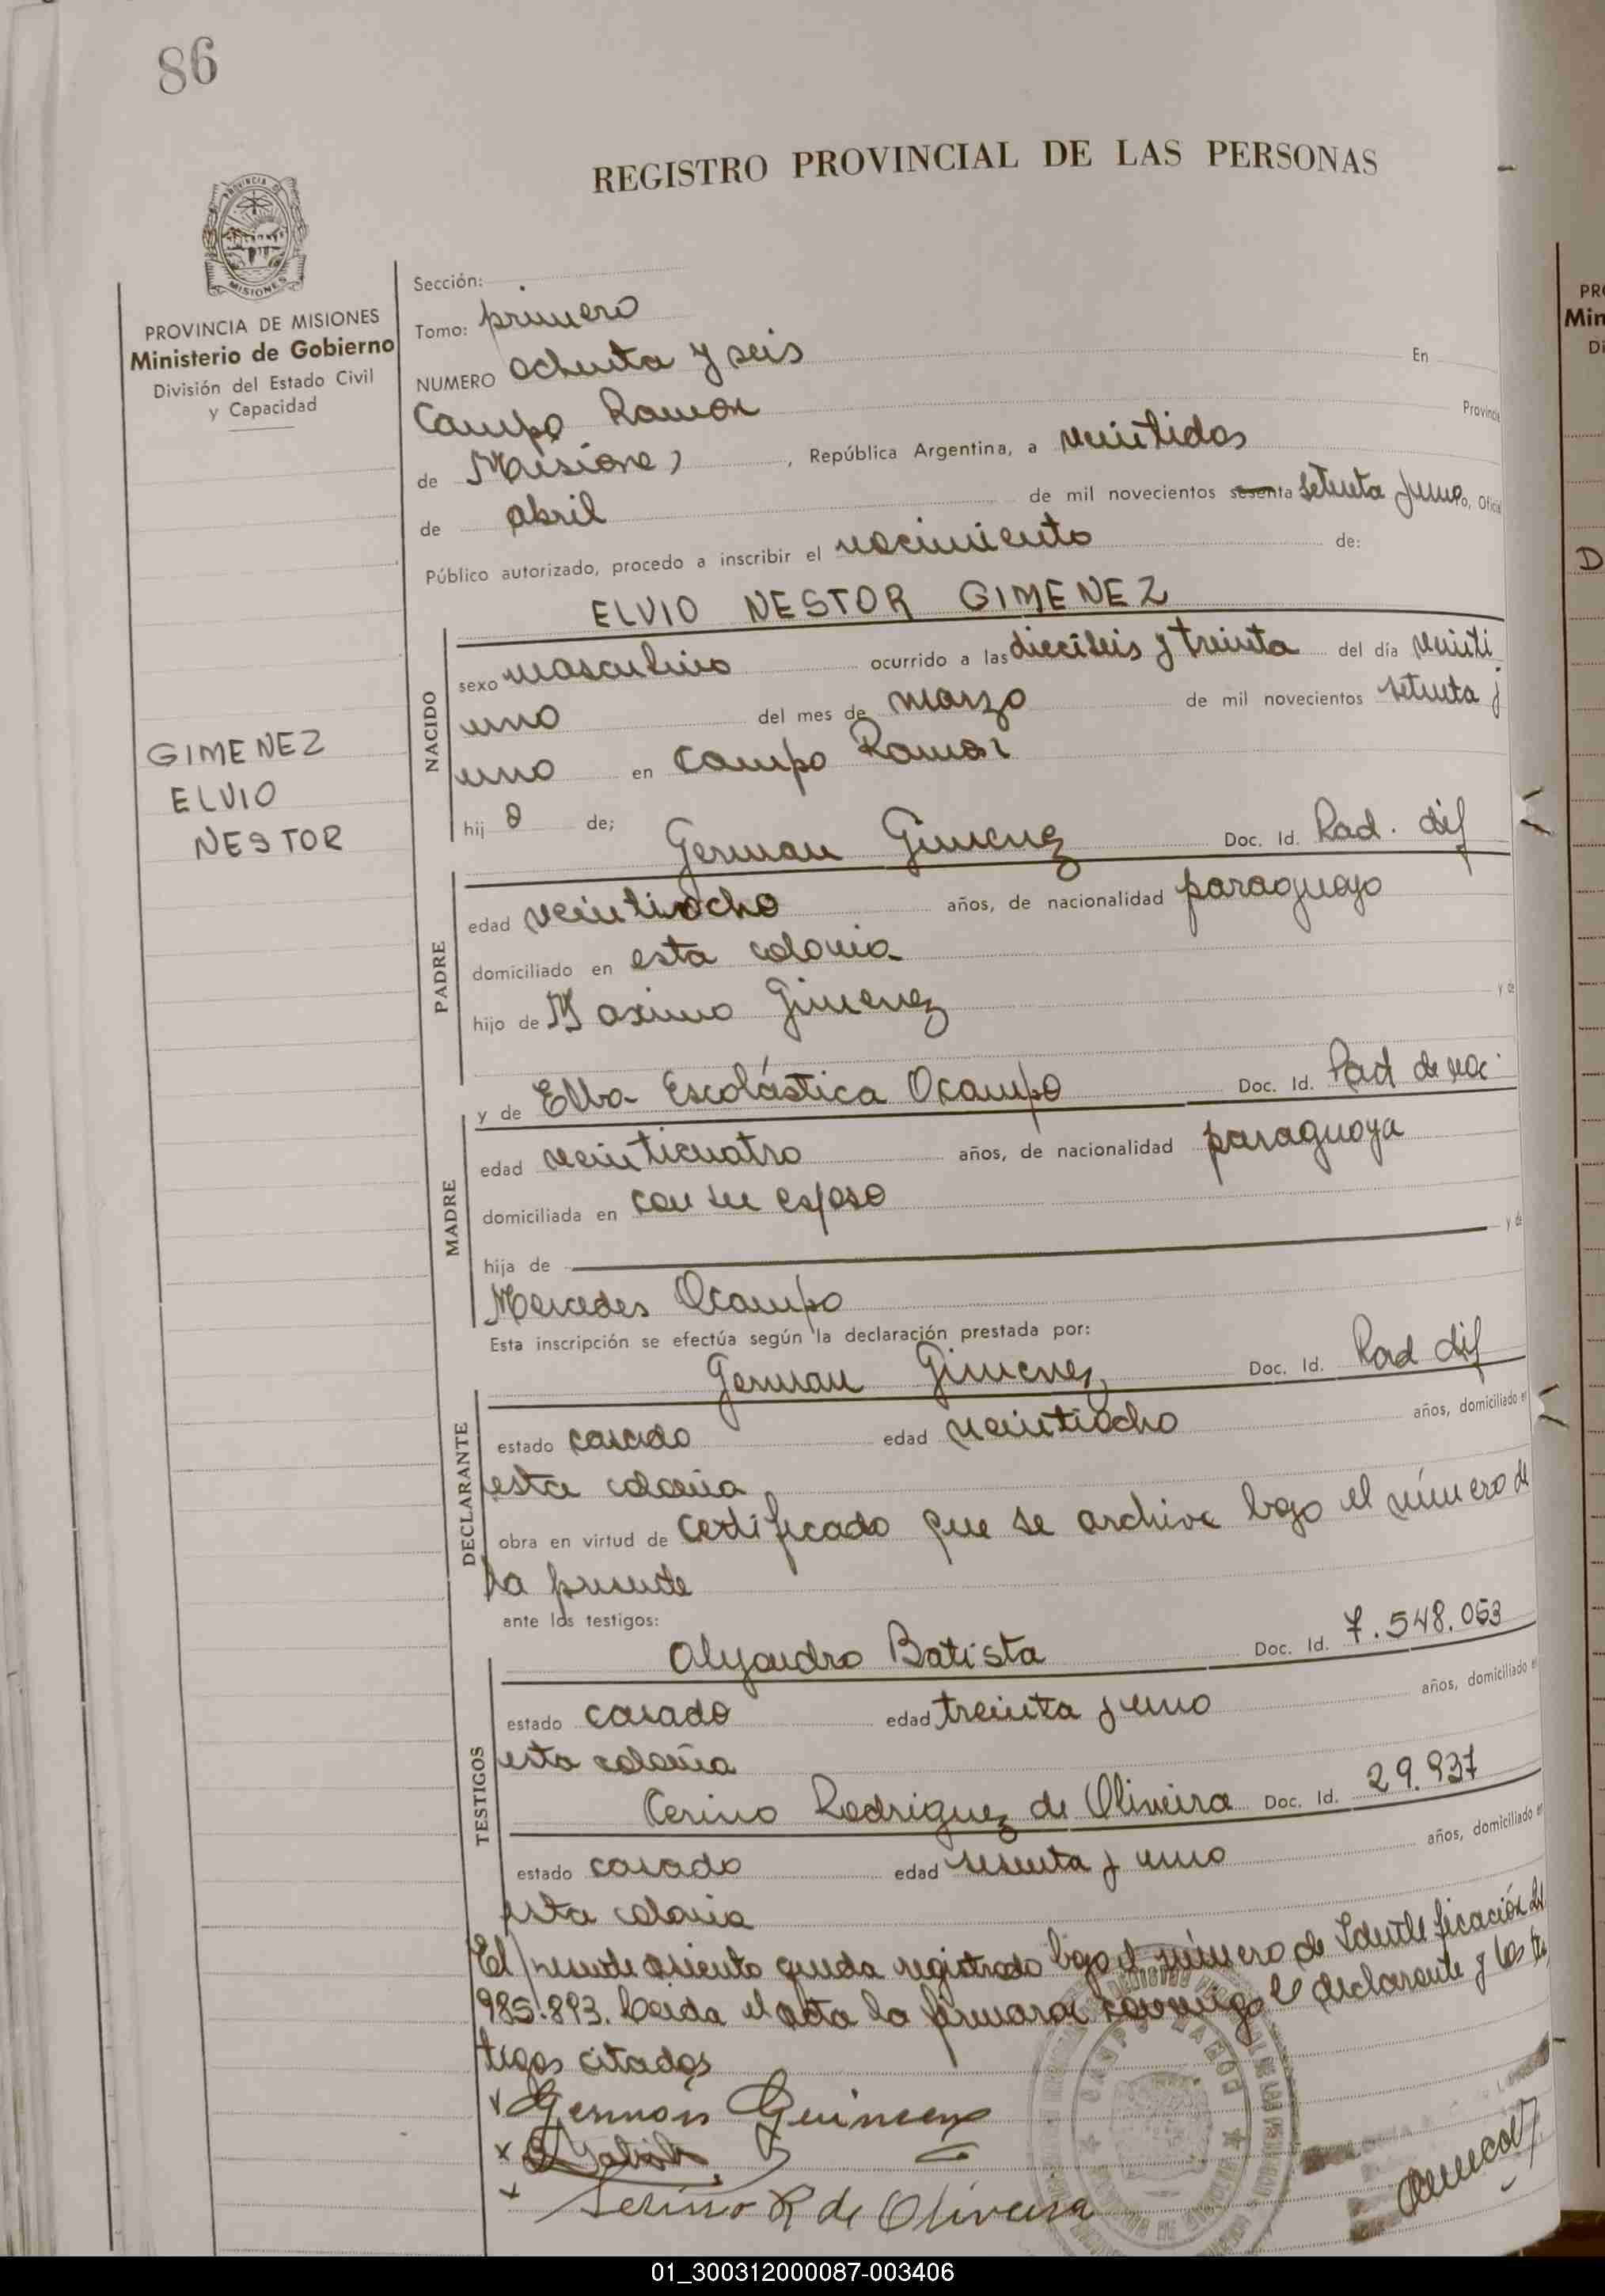 86
REGISTRO PROVINCIAL DE LAS PERSONAS
PROVINCIA DE
MISIONES
PROVINCIA DE MISIONES
Ministerio de Gobierno
División del Estado Civil
y Capacidad
GIMENEZ
ELVIO
NESTOR
Sección:
Tomo: primero
NUMERO ochenta y seis En
Campo Ramon Provincia
de Misiones, República Argentina, a veintidos
de abril de mil novecientos sesenta setenta y uno, Oficial
Público autorizado, procedo a inscribir el nacimiento de:
ELVIO NESTOR GIMENEZ
NACIDO
sexo masculino ocurrido a las dieciseis y treinta del día veinti
uno del mes de marzo de mil novecientos setenta y
uno en Campo Ramon
hij o de;
German Gimenez Doc. Id. Rad. dif
PADRE
edad veintiocho años, de nacionalidad paraguayo
domiciliado en esta colonia
hijo de Maximo Gimenez y de
y de Elba Escolástica Ocampo Doc. Id. Rad de nac.
MADRE
edad veinticuatro años, de nacionalidad paraguaya
domiciliada en con su esposo
hija de y de
Mercedes Ocampo
Esta inscripción se efectúa según la declaración prestada por:
German Gimenez Doc. Id. Rad dif
DECLARANTE
estado casado edad veintiocho años, domiciliado en
esta colonia
obra en virtud de certificado que se archiva bajo el número de
la presente
ante los testigos:
Alejandro Batista Doc. Id. 7.548.053
TESTIGOS
estado casado edad treinta y uno años, domiciliado en
esta colonia
Cerino Rodriguez de Oliveira Doc. Id. 29.937
estado casado edad sesenta y uno años, domiciliado en
esta colonia
El presente asiento queda registrado bajo el número de Identificación
985.893. Leida el acta la firmaron conmigo el declarante y los tes
tigos citados
Germán
CAMPO RAMON
Serino R de Oliveira
01_300312000087-003406